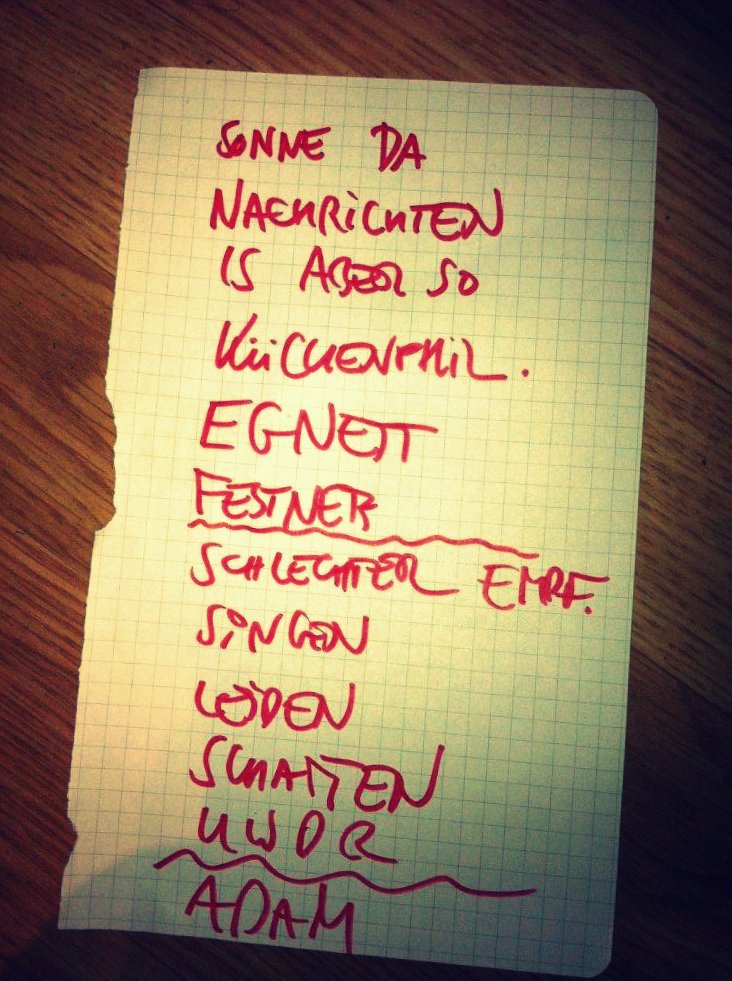 SONNE DA
NACHRiCHTEN
IS ABER SO
KÜCHENPHIL.
EGNETT
FESTNER
SCHLECHTER EMPF.
SiNGEN
LEiDEN
SCHATTEN
UWDR
ADAM